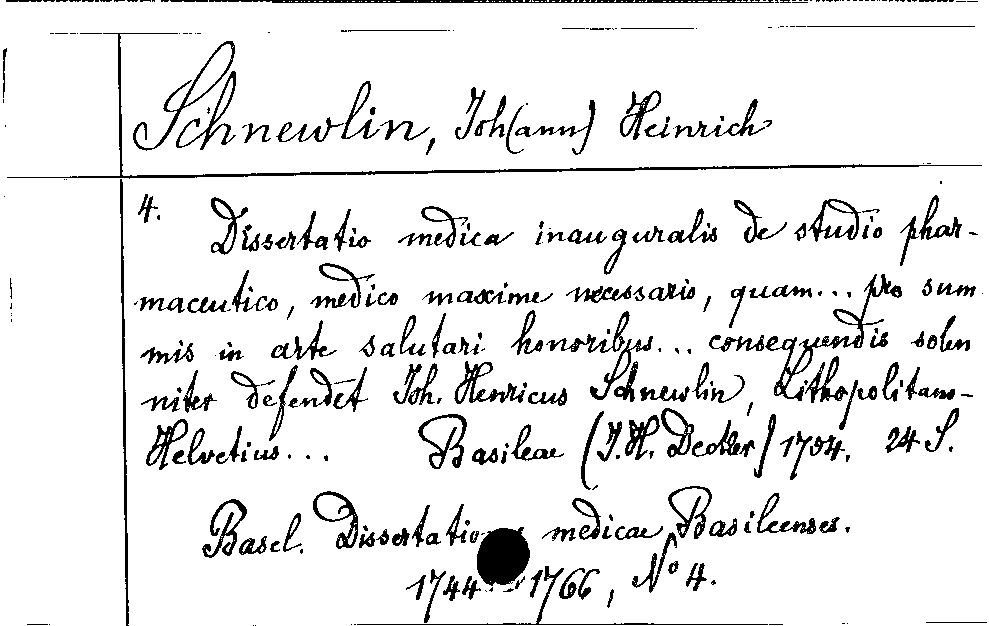 Schnewlin, Joh(ann) Heinrich
4.
Dissertatio medica inauguralis de studio phar-
maceutico, medico maxime necessario, quam... pro sum
mis in arte salutari honoribus... consequendis solen
niter defendet Joh. Henricus Schnewlin, Lithopolitano-
Helvetius... Basileae (J.H. Decker) 1754. 24 S.
Basel. medicae Basileenses.
1744 1766, No 4.